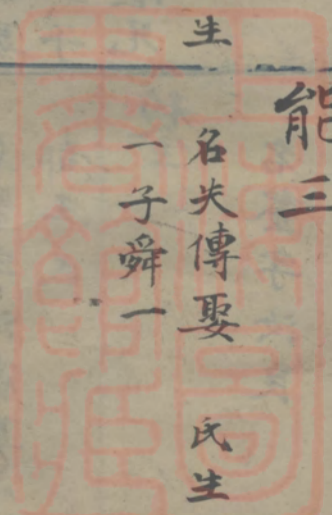 能三
生
名失傳娶 氏生
一子舜一